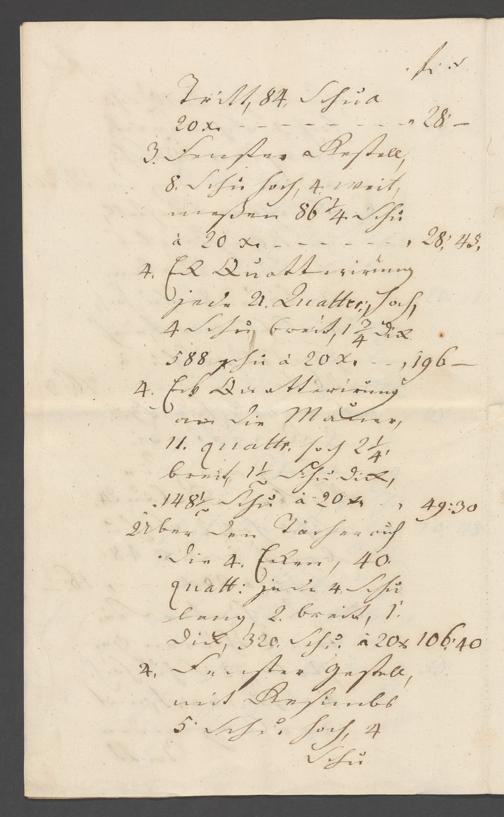 fl x
Tritt, 84. Schu a
20 x. - - - - - - - " 28 —
3. Fenster Gestell,
8. Schu hoch, 4 weit,
meßen 86 1/4 Schu
à 20 x. - - - - - - " 28: 45.
4. Eck Quatterirung
jede 21. Quatter, hoch,
4 Schu, breit, 1 3/4 dick
588 Schu à 20 x. - - " 196 —
4. Eck Quatterirung
an die Mauer,
11. quattr. hoch 2 1/4
breit, 1 1/2 Schu dick,
148 1/2 Schu à 20 x " 49: 30
Über den
die 4. Ecken, 40.
quatt: jede 4 Schu
lang, 2. breit, 1.
dick, 320. Schu. à 20 x 106: 40
2. Fenster Gestell,
mit
5 Schu. hoch, 4
Schu